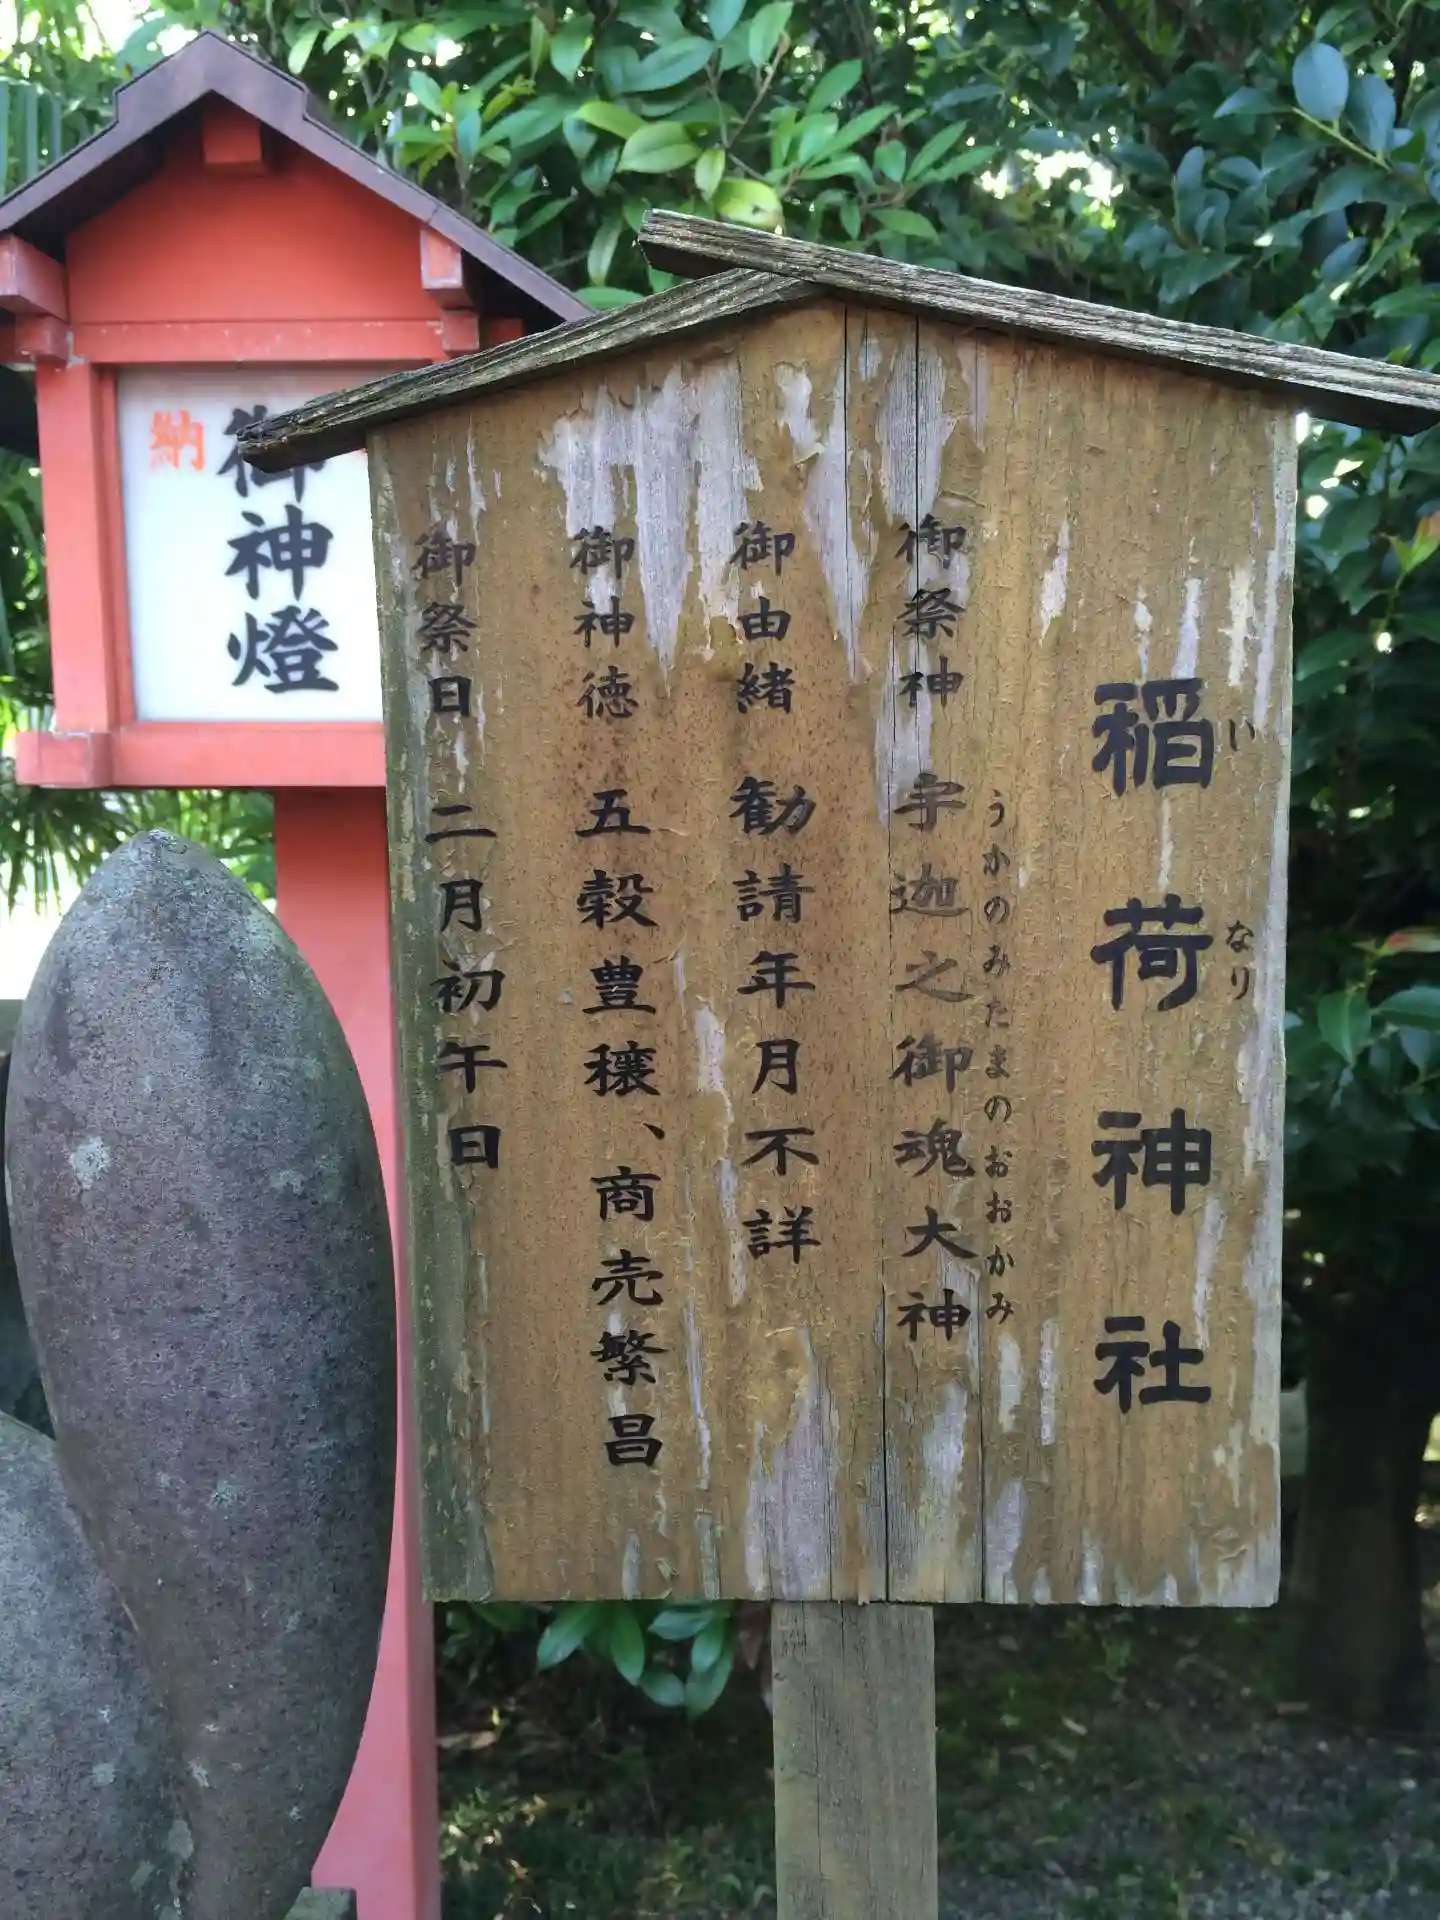 稲荷神社
いなり
御祭神 宇迦之御魂大神
うかのみたまのおおかみ
御由緒 勧請年月不詳
御神徳 五穀豊穣、商売繁昌
御祭日 二月初午日
御神燈
納